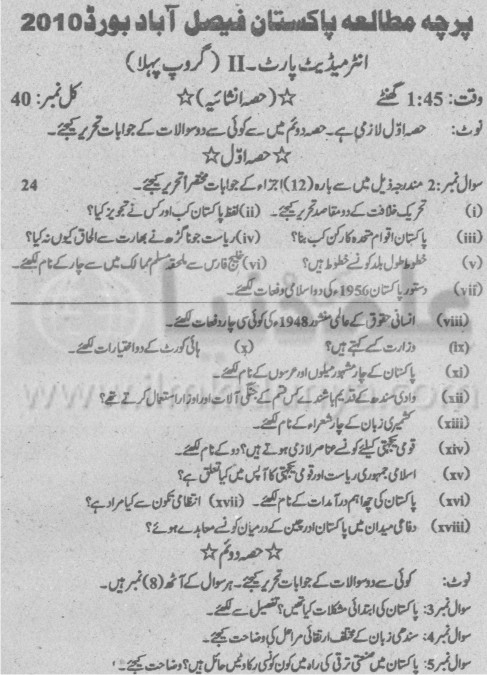 پرچہ مطالعہ پاکستان فیصل آباد بورڈ 2010
انٹرمیڈیٹ پارٹ۔ II (گروپ پہلا)
وقت: 1:45 گھنٹے ☆(حصہ انشائیہ)☆ کل نمبر: 40
نوٹ: حصہ اوّل لازمی ہے۔ حصہ دوئم میں سے کوئی سے دو سوالات کے جوابات تحریر کیجئے۔
☆حصہ اوّل☆
سوال نمبر: 2 مندرجہ ذیل میں سے بارہ (12) اجزاء کے جوابات مختصراً تحریر کیجئے۔ 24
(i) تحریک خلافت کے دو مقاصد تحریر کیجئے۔ (ii) لفظ پاکستان کب اور کس نے تجویز کیا؟
(iii) پاکستان اقوام متحدہ کا رکن کب بنا؟ (iv) ریاست جوناگڑھ نے بھارت سے الحاق کیوں نہ کیا؟
(v) خطوط طول بلد کونسے خطوط ہیں؟ (vi) خلیج فارس سے ملحقہ مسلم ممالک میں سے چار کے نام لکھئے۔
(vii) دستور پاکستان 1956ء کی دو اسلامی دفعات لکھئے۔
(viii) انسانی حقوق کے عالمی منشور 1948ء کی کوئی سی چار دفعات لکھئے۔
(ix) وزارت کسے کہتے ہیں؟ (x) ہائی کورٹ کے دو اختیارات لکھئے۔
(xi) پاکستان کے چار مشہور میلوں اور عرسوں کے نام لکھئے۔
(xii) وادی سندھ کے قدیم باشندے کس قسم کے جنگی آلات اور اوزار استعمال کرتے تھے؟
(xiii) کشمیری زبان کے چار شعراء کے نام لکھئے۔
(xiv) قومی یکجہتی کیلئے کونسے عناصر لازمی ہوتے ہیں؟ دو کے نام لکھئے۔
(xv) اسلامی جمہوری ریاست اور قومی یکجہتی کا آپس میں کیا تعلق ہے؟
(xvi) پاکستان کی چھ اہم درآمدات کے نام لکھئے۔ (xvii) انتظامی تکون سے کیا مراد ہے؟
(xviii) دفاعی میدان میں پاکستان اور چین کے درمیان کونسے معاہدے ہوئے؟
☆حصہ دوئم☆
نوٹ: کوئی سے دو سوالات کے جوابات تحریر کیجئے۔ ہر سوال کے آٹھ (8) نمبر ہیں۔
سوال نمبر 3: پاکستان کی ابتدائی مشکلات کیا تھیں؟ تفصیل سے لکھئے۔
سوال نمبر 4: سندھی زبان کے مختلف ارتقائی مراحل کی وضاحت کیجئے۔
سوال نمبر 5: پاکستان میں صنعتی ترقی کی راہ میں کون کونسی رکاوٹیں حائل ہیں؟ وضاحت کیجئے۔